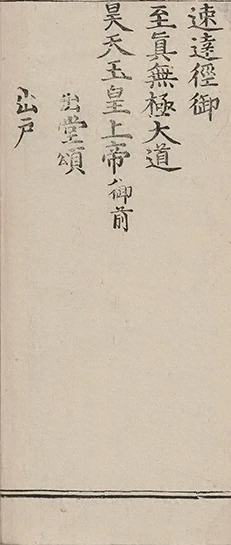 速達徑御
至眞無極大道
昊天玉皇上帝御前
出堂頌
出戶